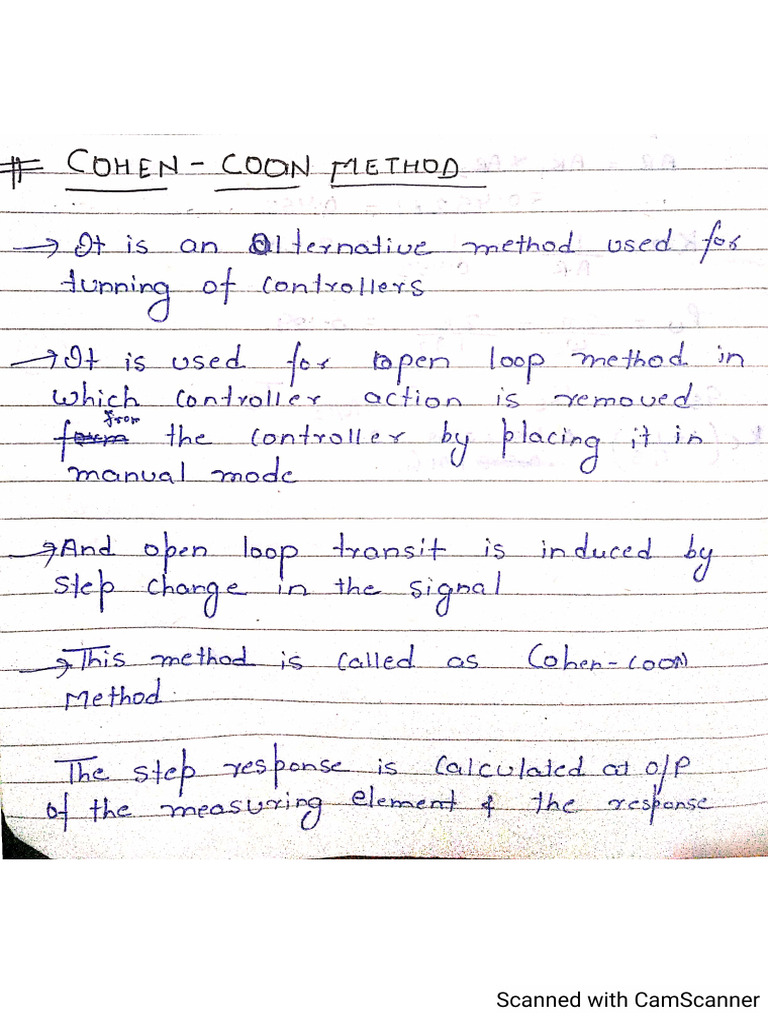 # COHEN - COON METHOD
→ It is an alternative method used for
tunning of controllers
→ It is used for open loop method in
which controller action is removed
from the controller by placing it in
manual mode
→ And open loop transit is induced by
step change in the signal
→ This method is called as Cohen-coon
Method.
The step response is calculated at o/p
of the measuring element & the response
Scanned with CamScanner